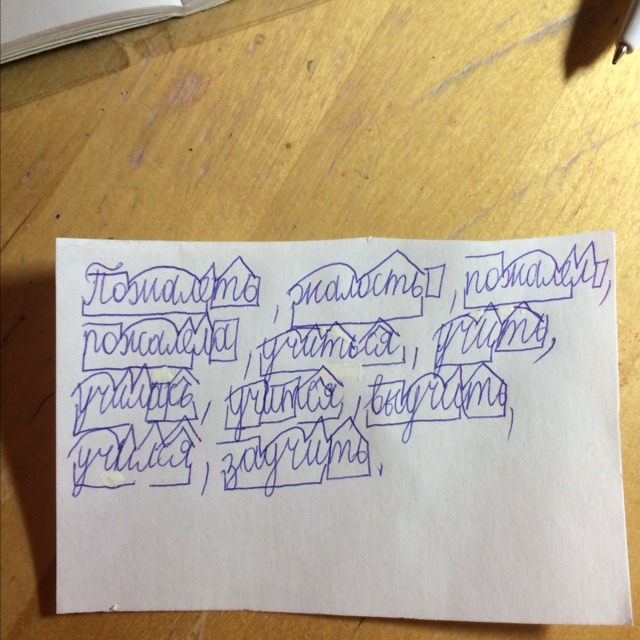 Пожалеть, жалость, пожалел,
пожалела, учиться, учить,
училась, учится, выучить,
учился, заучить.